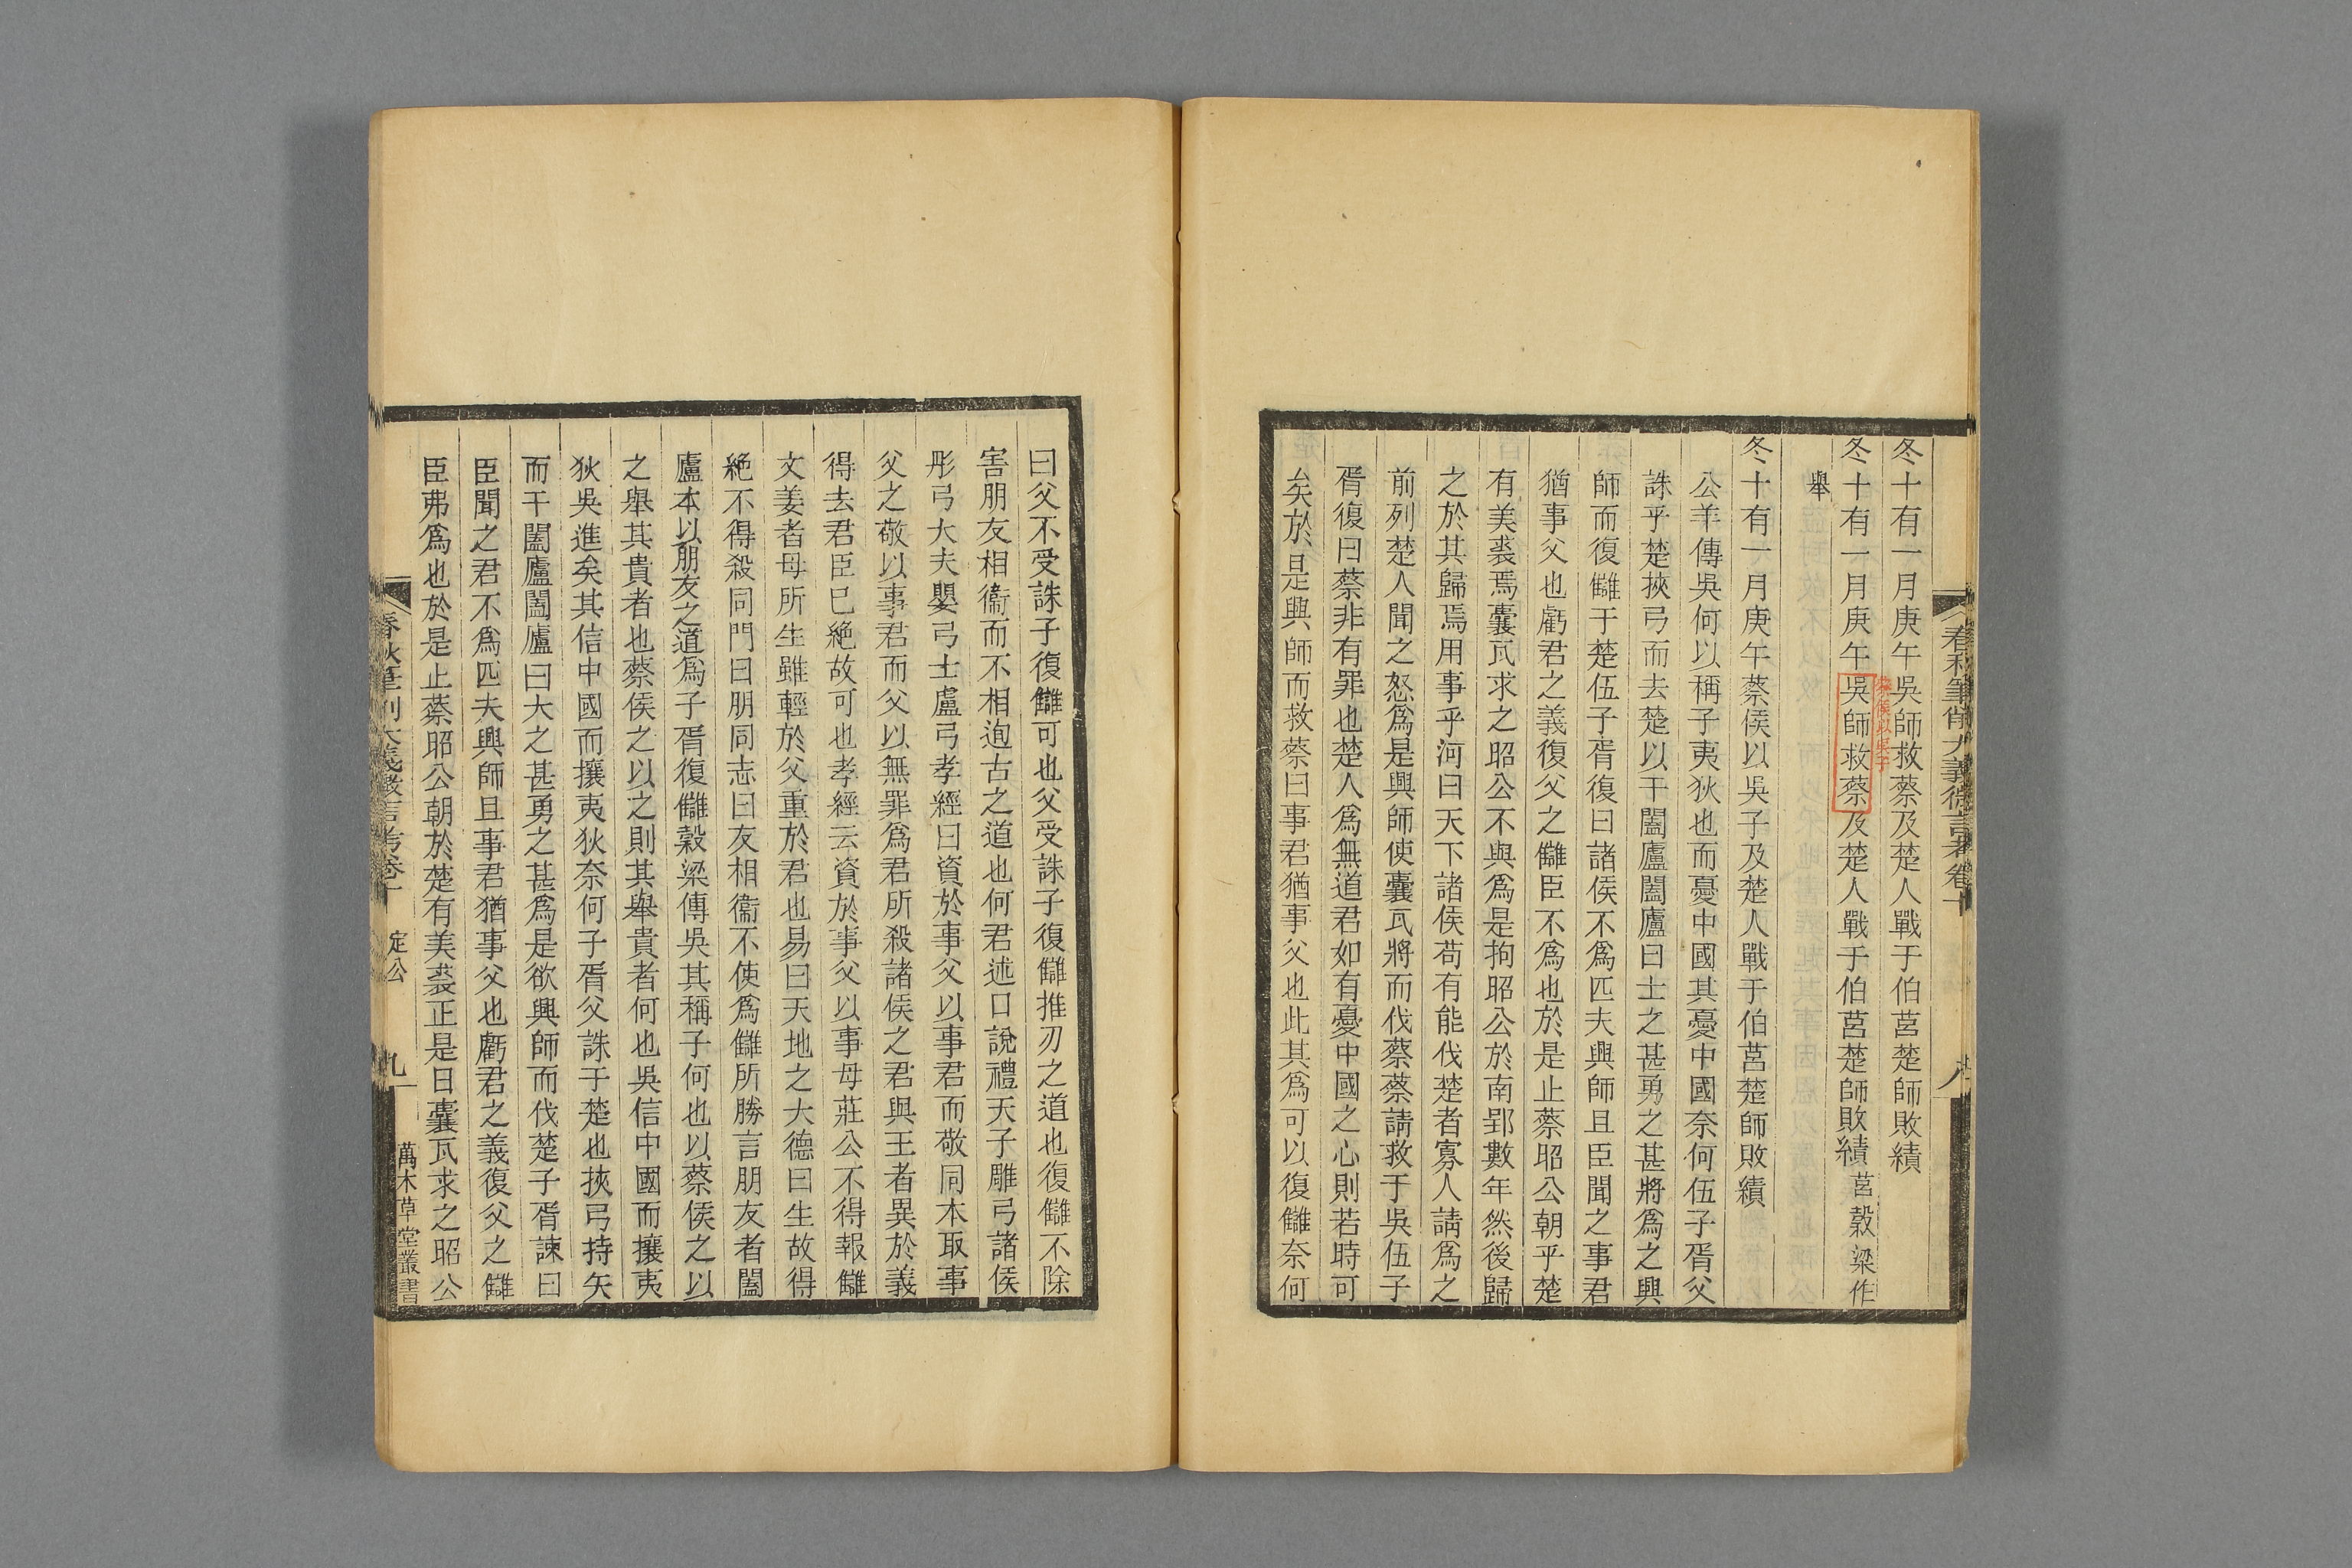 春秋筆削大義微言考卷十
八
冬十有一月庚午吳師救蔡及楚人戰于伯莒楚師敗績
蔡侯以吳子
冬十有一月庚午吳師救蔡及楚人戰于伯莒楚師敗績莒穀梁作
舉
冬十有一月庚午蔡侯以吳子及楚人戰于伯莒楚師敗績
公羊傳吳何以稱子夷狄也而憂中國其憂中國奈何伍子胥父
誅乎楚挾弓而去楚以干闔廬闔廬曰士之甚勇之甚將爲之興
師而復讎于楚伍子胥復曰諸侯不爲匹夫興師且臣聞之事君
猶事父也虧君之義復父之讎臣不爲也於是止蔡昭公朝乎楚
有美裘焉囊瓦求之昭公不與爲是拘昭公於南郢數年然後歸
之於其歸焉用事乎河曰天下諸侯苟有能伐楚者寡人請爲之
前列楚人聞之怒爲是興師使囊瓦將而伐蔡蔡請救于吳伍子
胥復曰蔡非有罪也楚人爲無道君如有憂中國之心則若時可
矣於是興師而救蔡曰事君猶事父也此其爲可以復讎奈何
曰父不受誅子復讎可也父受誅子復讎推刃之道也復讎不除
害朋友相衞而不相迿古之道也何君述口說禮天子雕弓諸侯
彤弓大夫嬰弓士盧弓孝經曰資於事父以事君而敬同本取事
父之敬以事君而父以無罪爲君所殺諸侯之君與王者異於義
得去君臣已絶故可也孝經云資於事父以事母莊公不得報讎
文姜者母所生雖輕於父重於君也易曰天地之大德曰生故得
絶不得殺同門曰朋同志曰友相衞不使爲讎所勝言朋友者闔
盧本以朋友之道爲子胥復讎穀梁傳吳其稱子何也以蔡侯之以
之舉其貴者也蔡侯之以之則其舉貴者何也吳信中國而攘夷
狄吳進矣其信中國而攘夷狄奈何子胥父誅于楚也挾弓持矢
而干闔廬闔廬曰大之甚勇之甚爲是欲興師而伐楚子胥諫曰
臣聞之君不爲匹夫興師且事君猶事父也虧君之義復父之讎
臣弗爲也於是止蔡昭公朝於楚有美裘正是日囊瓦求之昭公
春秋筆削大義微言考卷十　定公　九　萬木草堂叢書